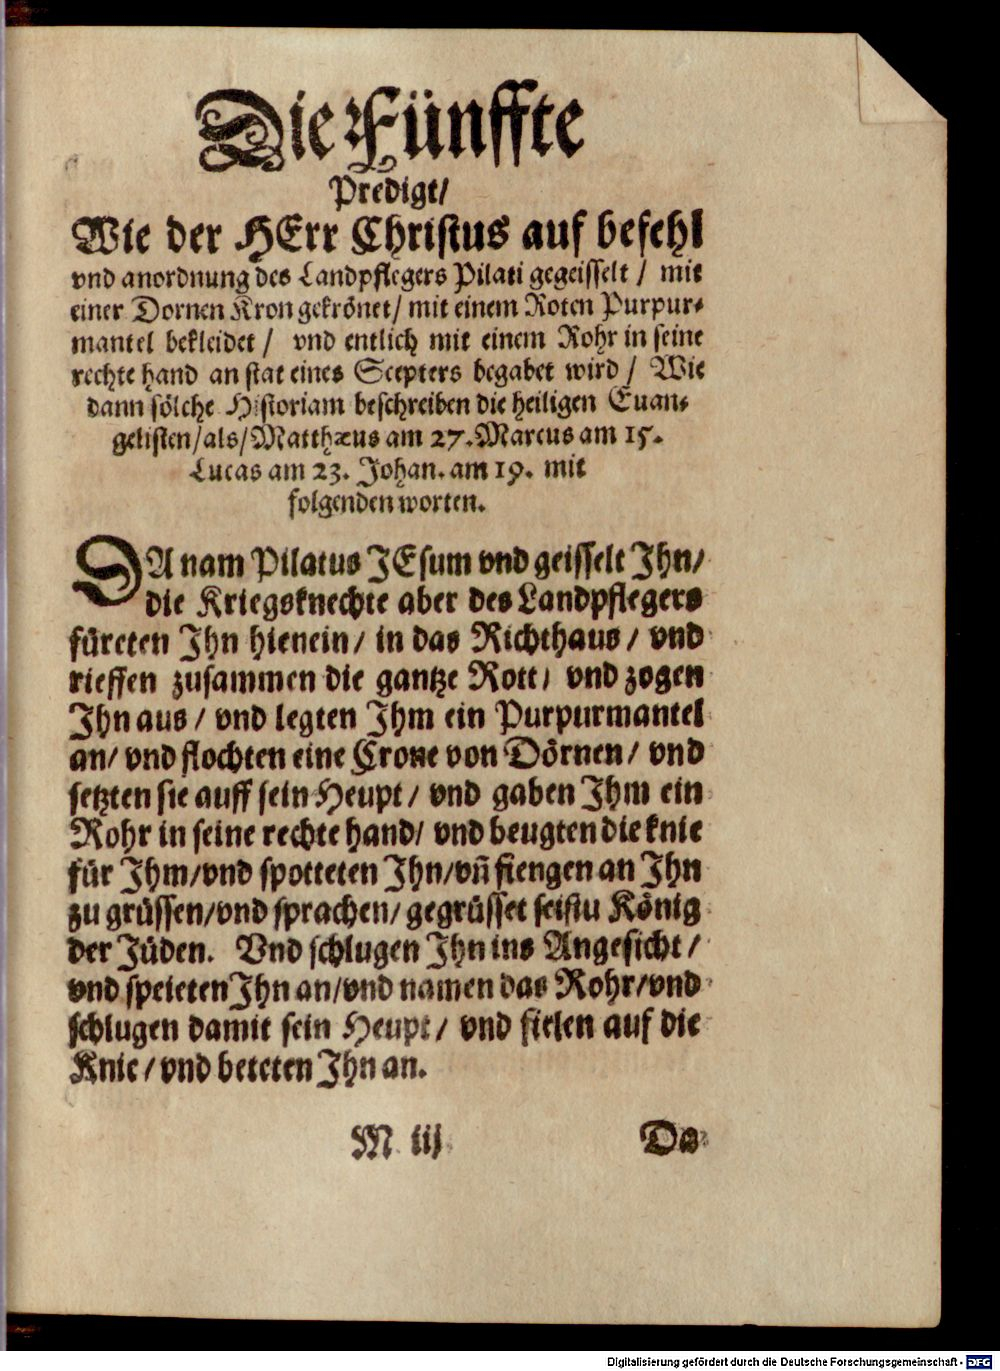 Die Fünffte
Predigt/
Wie der HErr Christus auf befehl
vnd anordnung des Landpflegers Pilati gegeisselt / mit
einer Dornen Kron gekrönet / mit einem Roten Purpur-
mantel bekleidet / vnd entlich mit einem Rohr in seine
rechte hand an stat eines Scepters begabet wird / Wie
dann sölche Historiam beschreiben die heiligen Euan-
gelisten/als/Matthæus am 27. Marcus am 15.
Lucas am 23. Johan. am 19. mit
folgenden worten.
DA nam Pilatus JEsum vnd geisselt Jhn/
die Kriegsknechte aber des Landpflegers
füreten Jhn hienein / in das Richthaus / vnd
rieffen zusammen die gantze Rott / vnd zogen
Jhn aus / vnd legten Jhm ein Purpurmantel
an/ vnd flochten eine Crone von Dörnen / vnd
setzten sie auff sein Heupt / vnd gaben Jhm ein
Rohr in seine rechte hand/ vnd beugten die knie
für Jhm/vnd spotteten Jhn/vñ fiengen an Jhn
zu grüssen/vnd sprachen/ gegrüsset seistu König
der Jüden. Vnd schlugen Jhn ins Angesicht /
vnd speieten Jhn an/vnd namen das Rohr/vnd
schlugen damit sein Heupt / vnd fielen auf die
Knie / vnd beteten Jhn an.
M iij
Da
Digitalisierung gefördert durch die Deutsche Forschungsgemeinschaft - DFG